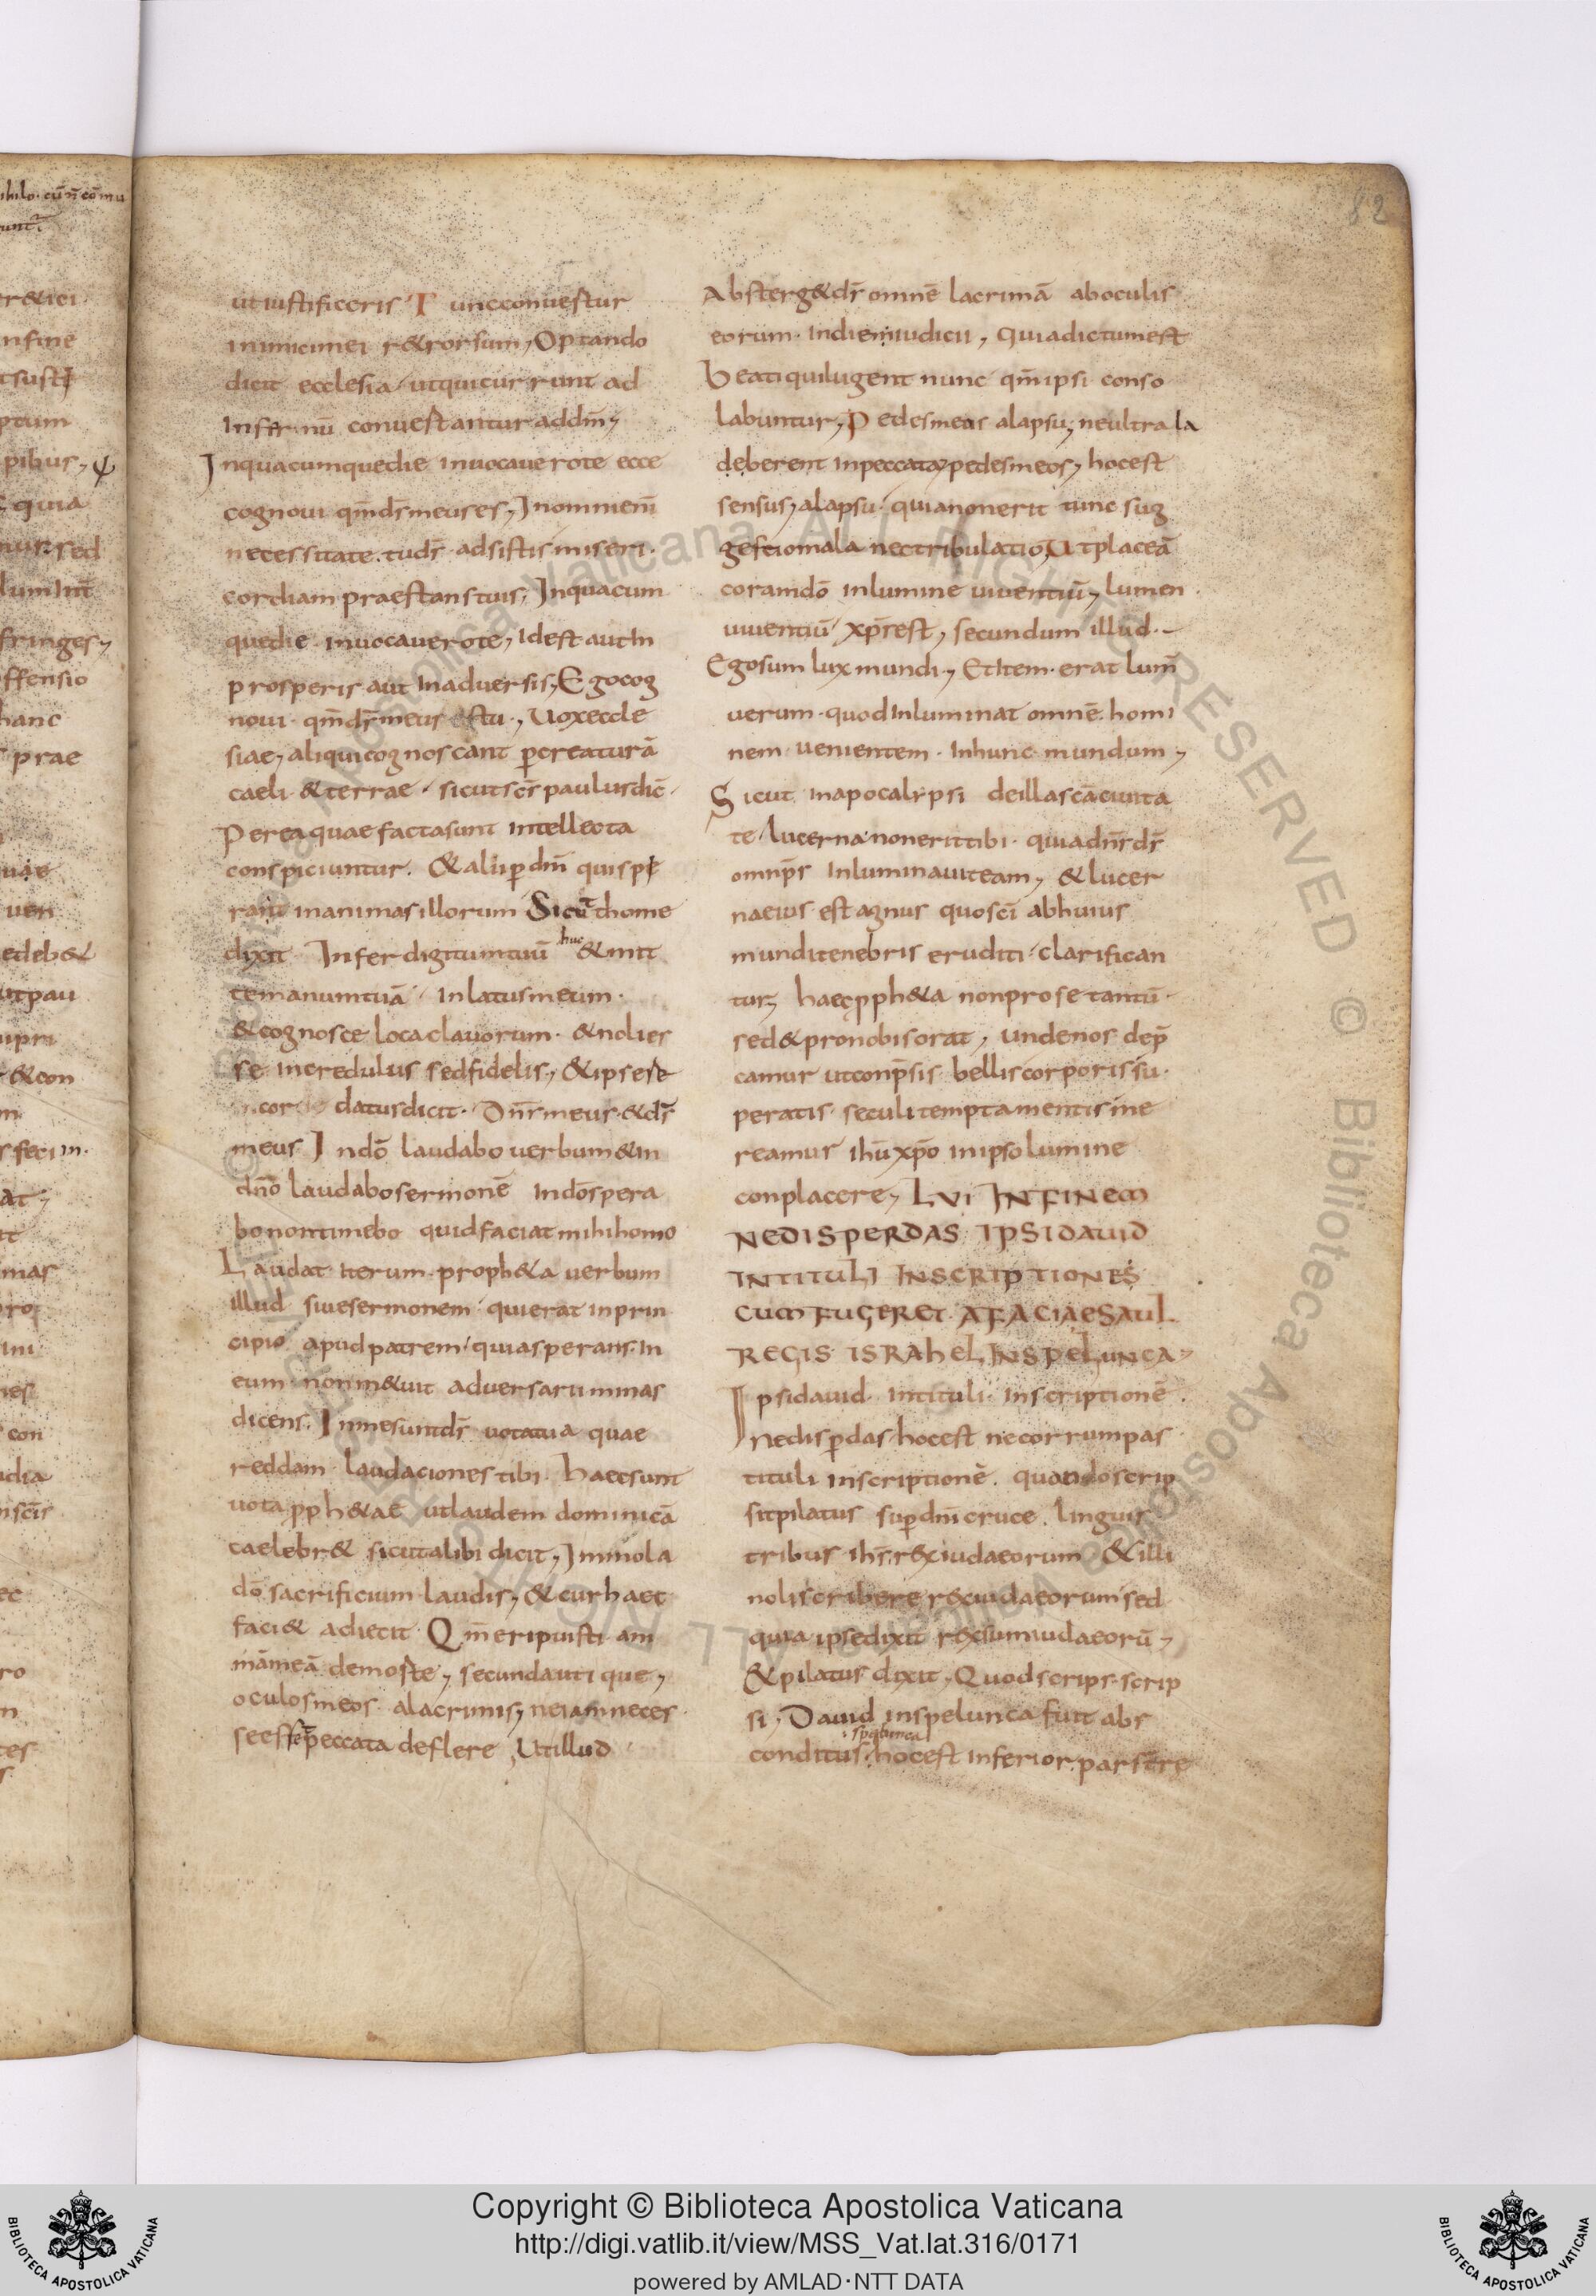 82
ut iustificeris T unc conuestur
inimici mei r&rorsum, Optando
dicit ecclesia utqui currunt ad
Infernū conuestantur addm̄,
Inquacumquedie inuocauerote ecce
cognoui qm̄ds̄meuses, Inominem̄
necessitate. tuds̄ adsistis miseri.
cordiam praestanstuis, Inquacum
quedie inuocauerote, Idest autIn
prosperis aut Inaduersis, Egocog
noui qm̄ds̄meus estu., Uoxeccle
siae, aliqui cognoscant p̄creaturā
caeli &terrae sicut sc̄s paulus dic̄
Perea quae factasunt Intellecta
conspiciuntur. &alii p̄ dm̄ qui spe
rant inanimas illorum Sicut thome
huc
dixit Infer digitumtuū &mit
temanumtuā Inlatusmeum
&cognosce loca clauorum. &nolies
se incredulus sedfidelis, &ipsese
cor datusdicit. Dn̄smeus &ds̄
meus Indō laudabo uerbum&in
dnō laudabosermonē Indōspera
bonontimebo quidfaciatmihihomo
Laudat iterum proph&a uerbum
illud siuesermonem quierat inprin
cipio apudpatrem quiasperans. In
eum nonm&uit aduersarii minas
dicens. Inmesuntds̄ uotatua quae
reddam laudaciones tibi. haecsunt
uota p̄ph&ae utlaudem dominicā
caelebr& sicutalibi dicit, Immola
dō sacrificium laudis, &curhaec
faci& adiecit Qm̄eripuisti ani
māmeā demorte, secundauti que,
oculosmeos alacrimis, neiamneces
seesset peccata deflere Utillud
Absterg&ds̄ omnē lacrimā aboculis
eorum. Indiemiudicii, Quiadictumest
Beatiquilugent nunc qm̄ipsi conso
labuntur, Pedesmeos alapsu, neultrala
deberent inpeccata, pedesmeos, hocest
sensus, alapsu quianonerit tunc sug
gesciomala nectribulatio, Utplaceā
coramdō Inlumine uiuentiū, Lumen
uiuentiū xp̄s est, secundum illud.
Egosum lux mundi, EtItem. erat lum̄
uerum quodInluminat omnē. homi
nem uenientem. Inhunc mundum,
Sicut inapocalypsi deillascāciuita
te Lucerna nonerittibi. quiadn̄sds̄
omnp̄s Inluminauiteam, &lucer
naeius est agnus quoscī abhuius
munditenebris eruditi clarifican
tur, haecp̄ph&a nonprose tantū.
sed&pronobisorat, Undenos dep̄
camur utconp̄sis belliscorporissu.
peratis seculitemptamentisine
reamur ihūxp̄o inipsolumine
conplacere, LVI INFINEM
NEDISPERDAS IPSIDAUID
INTITULI INSCRIPTIONES
CUM FUGERET AFACIAESAUL
REGIS ISRAHEL INSPELUNCA,
Ipsidauid. Intituli Inscriptionē.
Nedisp̄das hocest necorrumpas
tituli Inscriptionē. quandoscrip
sitpilatus sup̄dn̄icruce. linguis
tribus ihs̄ rexiudaeorum &illi
noliscribere rexiudaeorum sed
quia ipsedixit rexsumiudaeorū,
&pilatus dixit, Quodscrips. scrip
si, Dauid inspelunca fuit abs
spelunca
conditus hocest Inferior. parstr̄e
Copyright © Biblioteca Apostolica Vaticana
http://digi.vatlib.it/view/MSS_Vat.lat.316/0171
powered by AMLAD·NTT DATA
BIBLIOTECA APOSTOLICA VATICANA
BIBLIOTECA APOSTOLICA VATICANA